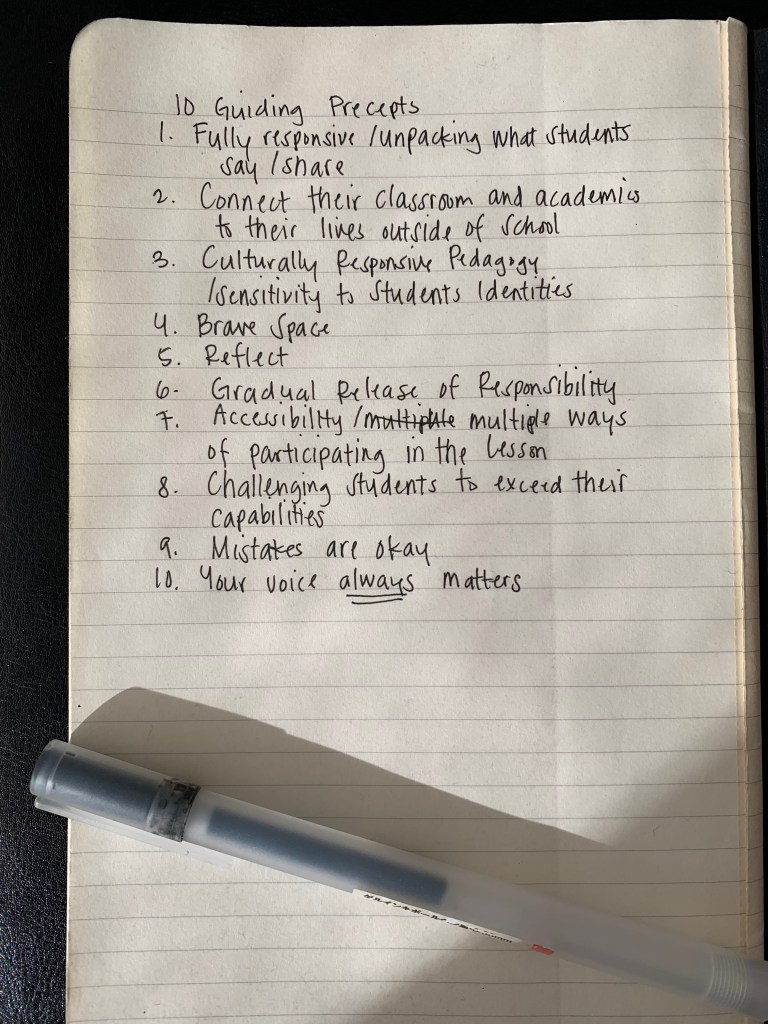 10 Guiding Precepts
1. Fully responsive /unpacking what students
say /share
2. Connect their classroom and academics
to their lives outside of school
3. Culturally Responsive Pedagogy
/sensitivity to students identities
4. Brave Space
5. Reflect
6. Gradual Release of Responsibility
7. Accessibility / multiple ways
of participating in the lesson
8. Challenging students to exceed their
capabilities
9. Mistakes are okay
10. Your voice always matters